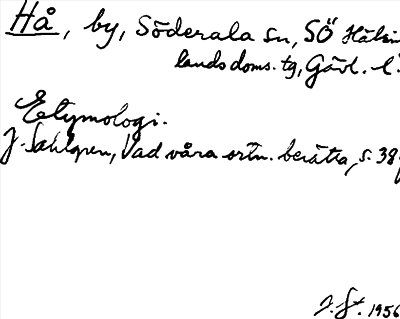 Hå, by, Söderala sn, SÖ Hälsin
lands doms. tg, Gävl. l.
Etymologi.
J. Sahlgren, Vad våra ortn. berätta, s. 39
J. St. 1956